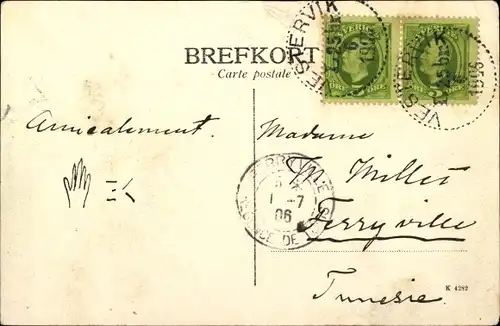 BREFKORT
Carte postale
SVERIGE
VESTERVIK
VESTERVIK
1906
Amicalement.
Madame
M. Millet
Ferryville
Tunisie.
FERRYVILLE
1-7
06
K 4282